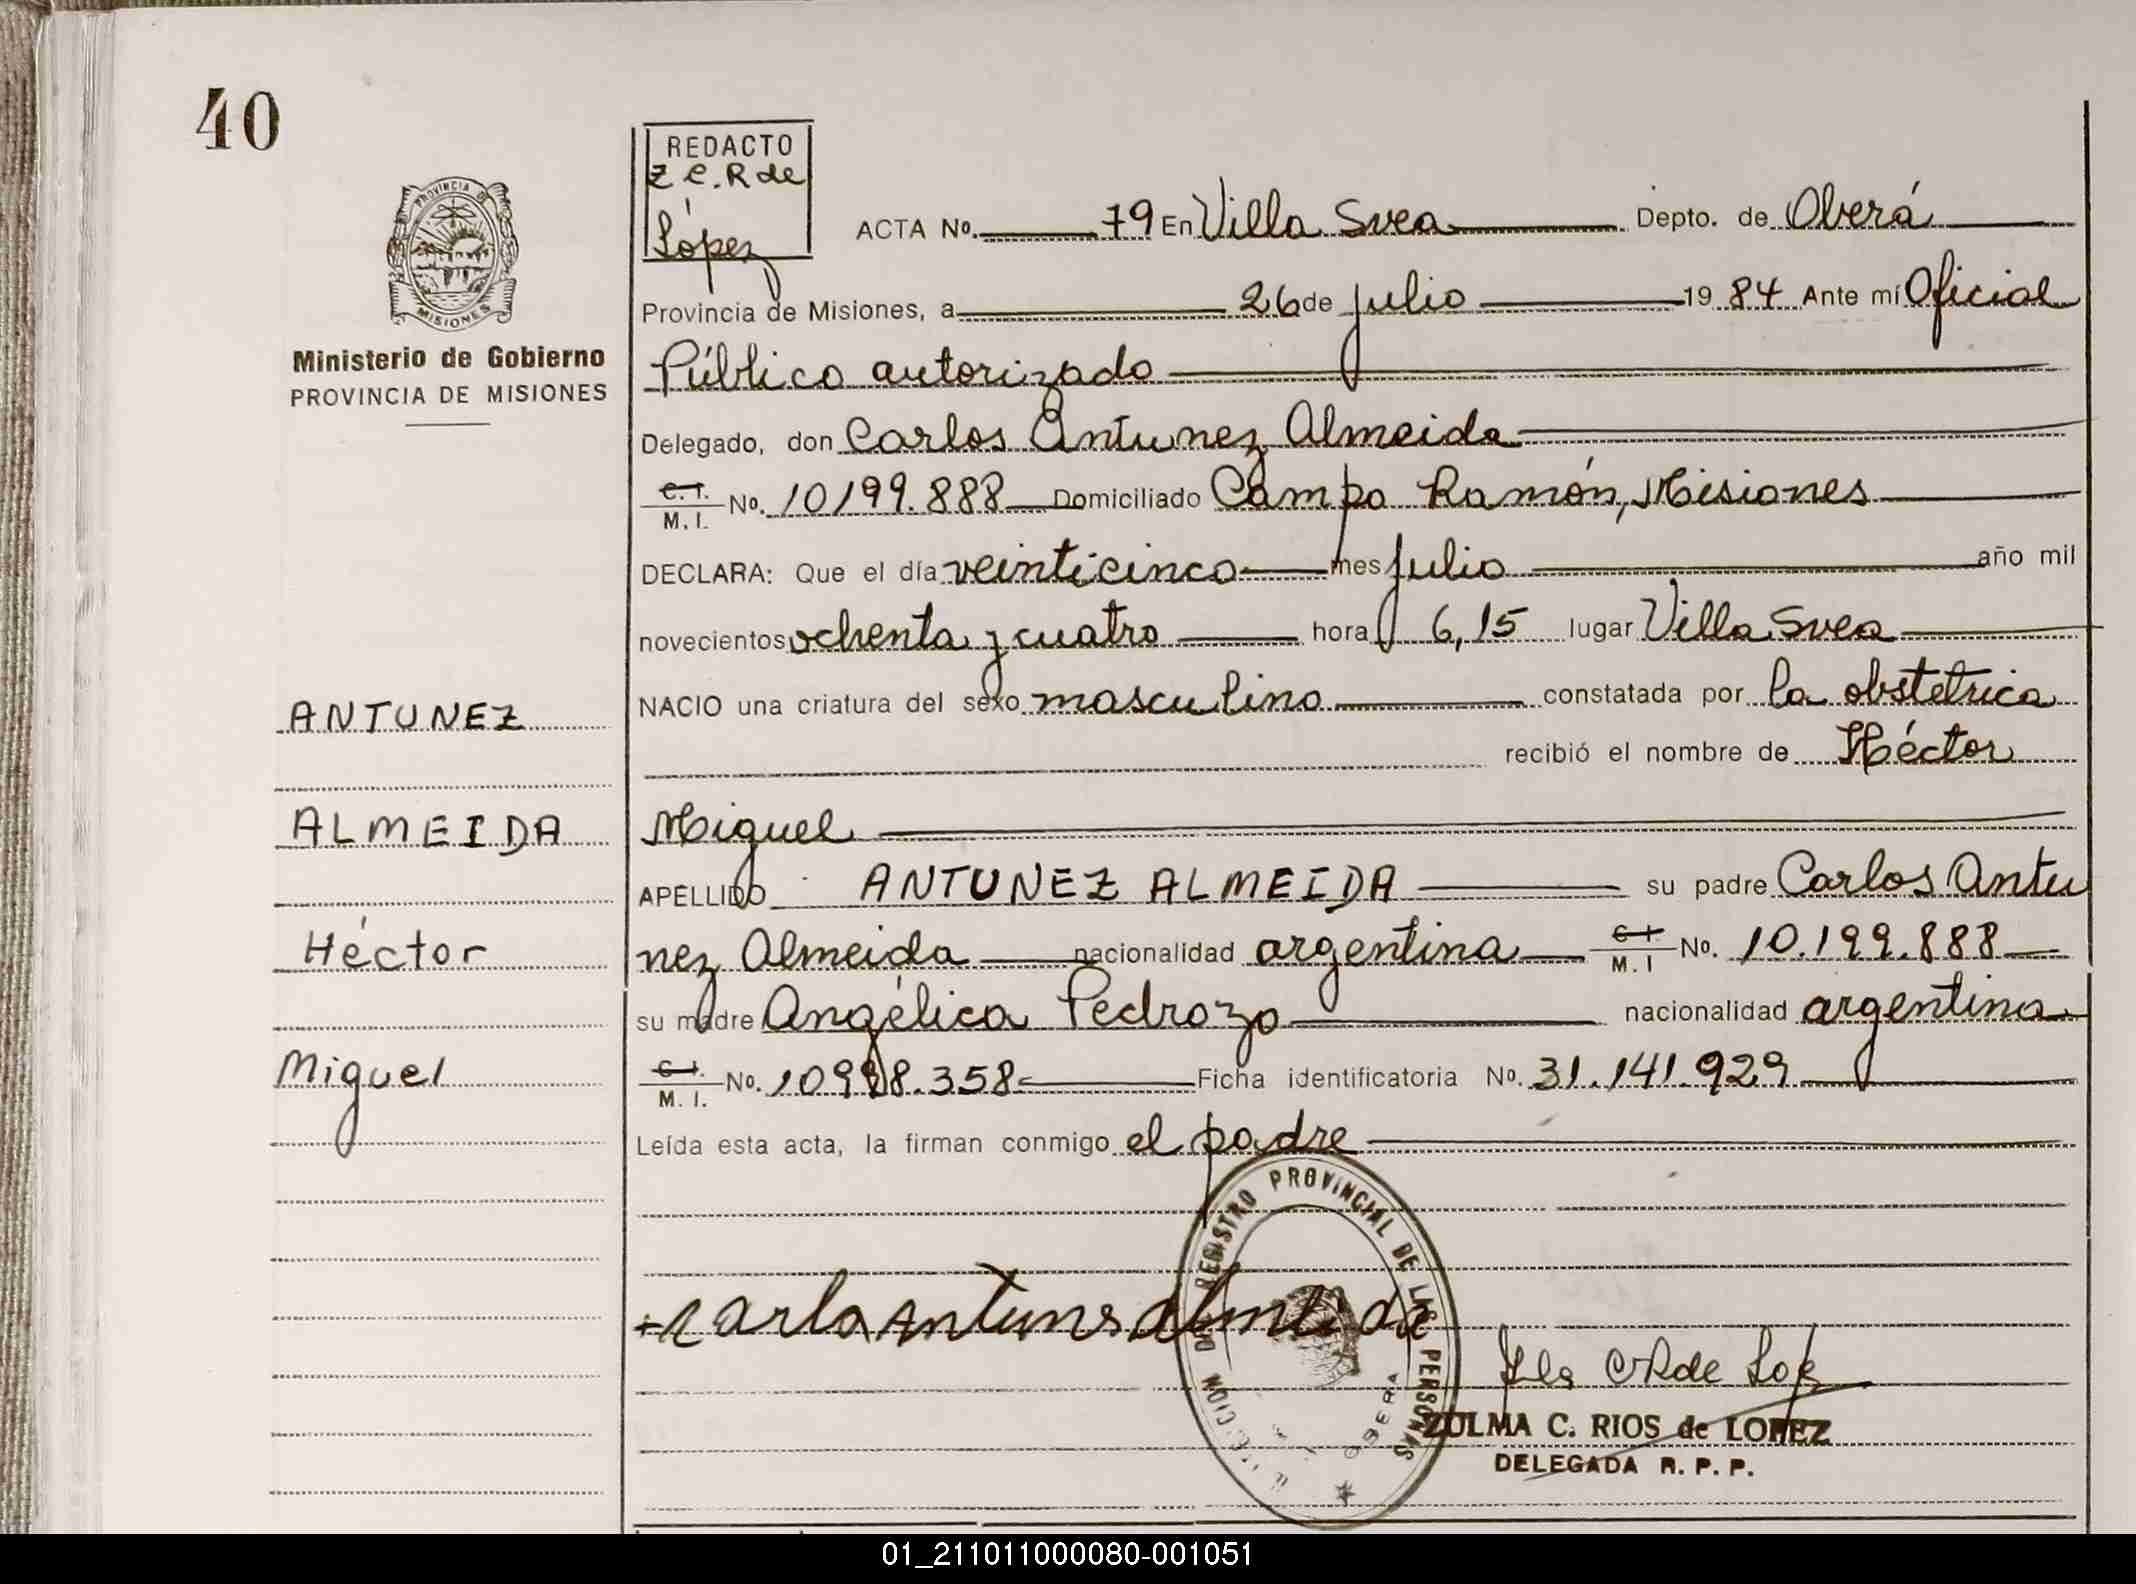 40
REDACTO
Z C. R de
López
PROVINCIA DE
MISIONES
Ministerio de Gobierno
PROVINCIA DE MISIONES
ACTA No. 79 En Villa Svea Depto. de Oberá
Provincia de Misiones, a 26 de Julio 19 84 Ante mí Oficial
Público autorizado
Delegado, don Carlos Antunez Almeida
C. I. / M. I. No. 10199.888 Domiciliado Campo Ramón, Misiones
DECLARA: Que el día veinticinco mes Julio año mil
novecientos ochenta y cuatro hora 6,15 lugar Villa Svea
NACIO una criatura del sexo masculino constatada por la obstetrica
recibió el nombre de Héctor
Miguel
APELLIDO ANTUNEZ ALMEIDA su padre Carlos Antu
nez Almeida nacionalidad argentina C I. / M. I No. 10.199.888
su madre Angélica Pedrozo nacionalidad argentina
C I. / M. I. No. 10998.358 Ficha identificatoria No. 31.141.929
Leída esta acta, la firman conmigo el padre
ANTUNEZ
ALMEIDA
Héctor
Miguel
REGISTRO PROVINCIAL DE LAS PERSONAS
OBERA
ZULMA C. RIOS de LOPEZ
DELEGADA R. P. P.
01_211011000080-001051